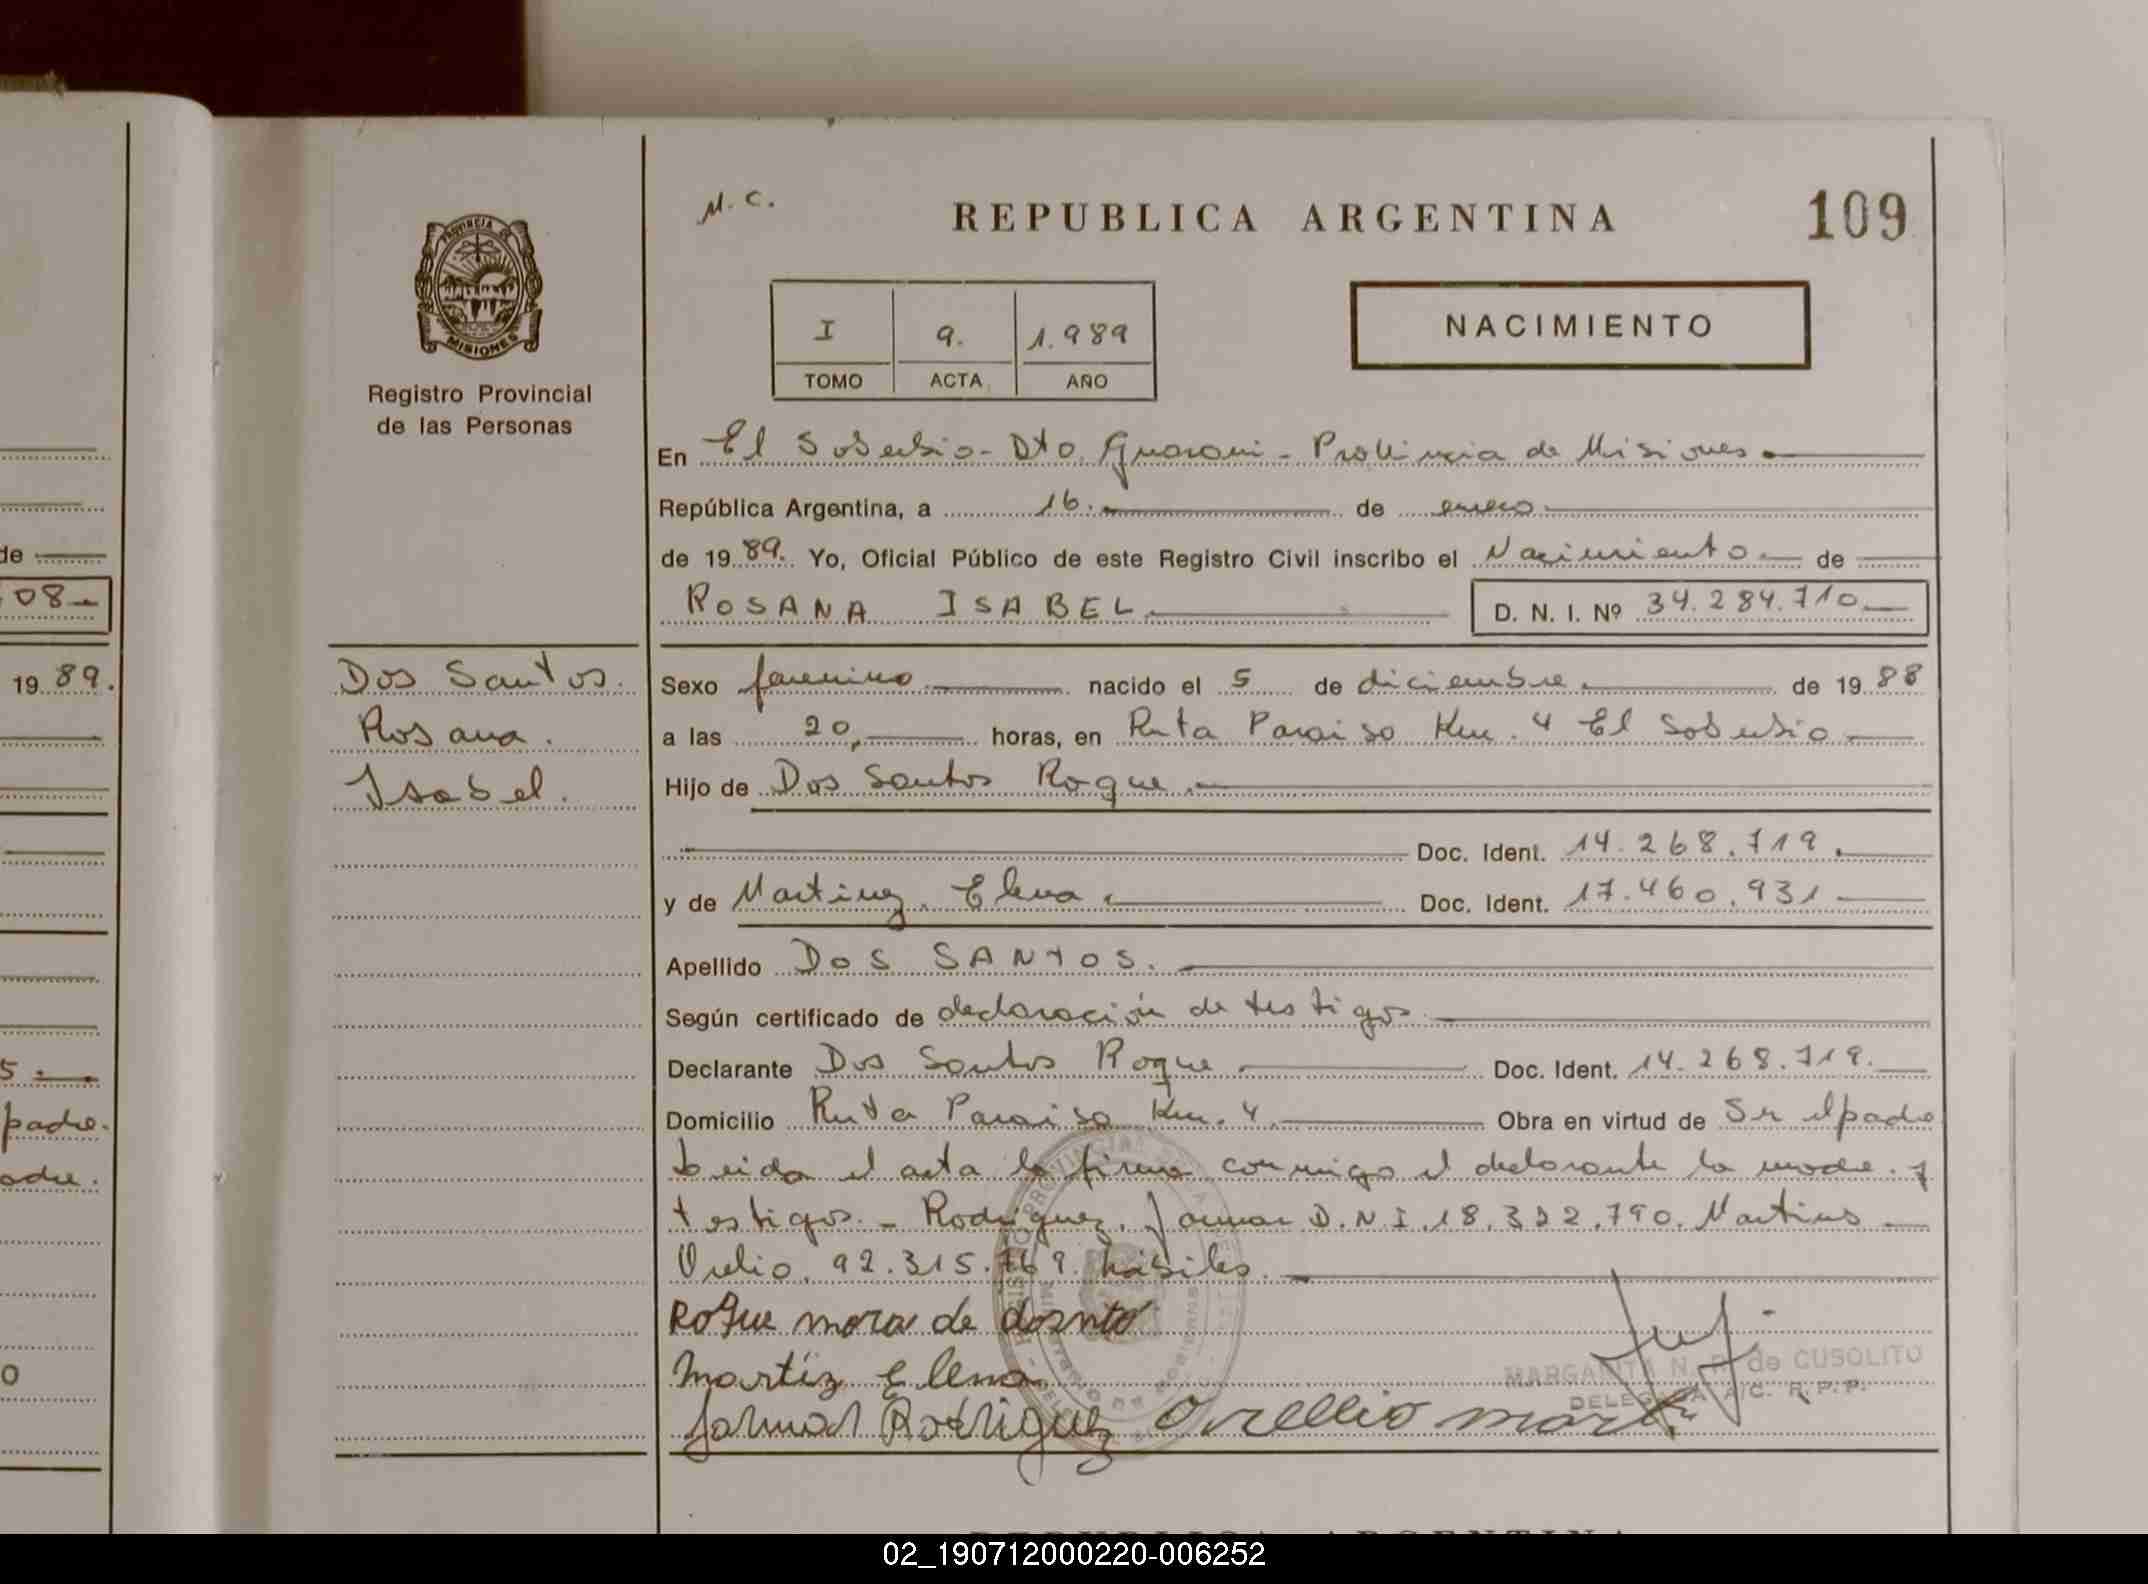 de
08
19 89.
5
padre.
adre.
O
PROVINCIA DE
MISIONES
Registro Provincial
de las Personas
Dos Santos.
Rosana.
Isabel.
M. C.
REPUBLICA ARGENTINA
109
I 9. 1.989
TOMO ACTA AÑO
NACIMIENTO
En El Soberbio - Dto. Guarani - Provincia de Misiones
República Argentina, a 16. de enero
de 19 89. Yo, Oficial Público de este Registro Civil inscribo el Nacimiento de
ROSANA ISABEL D. N. I. Nº 34.284.710
Sexo femenino nacido el 5 de diciembre de 19 88
a las 20, horas, en Ruta Paraiso Km. 4 El Soberbio
Hijo de Dos Santos Roque
Doc. Ident. 14.268.719.
y de Martinez, Elena Doc. Ident. 17.460.931
Apellido DOS SANTOS.
Según certificado de declaración de testigos
Declarante Dos Santos Roque Doc. Ident. 14.268.719.
Domicilio Ruta Paraiso Km. 4 Obra en virtud de Ser el padre
Leida el acta la firma conmigo el declarante la madre. y
testigos. - Rodriguez, D.N.I. 18.322.790. Martins
92.315.769. hábiles.
Roque mora de
Martiz Elena
Rodriguez Orellio
MARGARITA N. de CUSOLITO
DELEGADA A/C. R. P. P.
REPUBLICA ARGENTINA
02_190712000220-006252